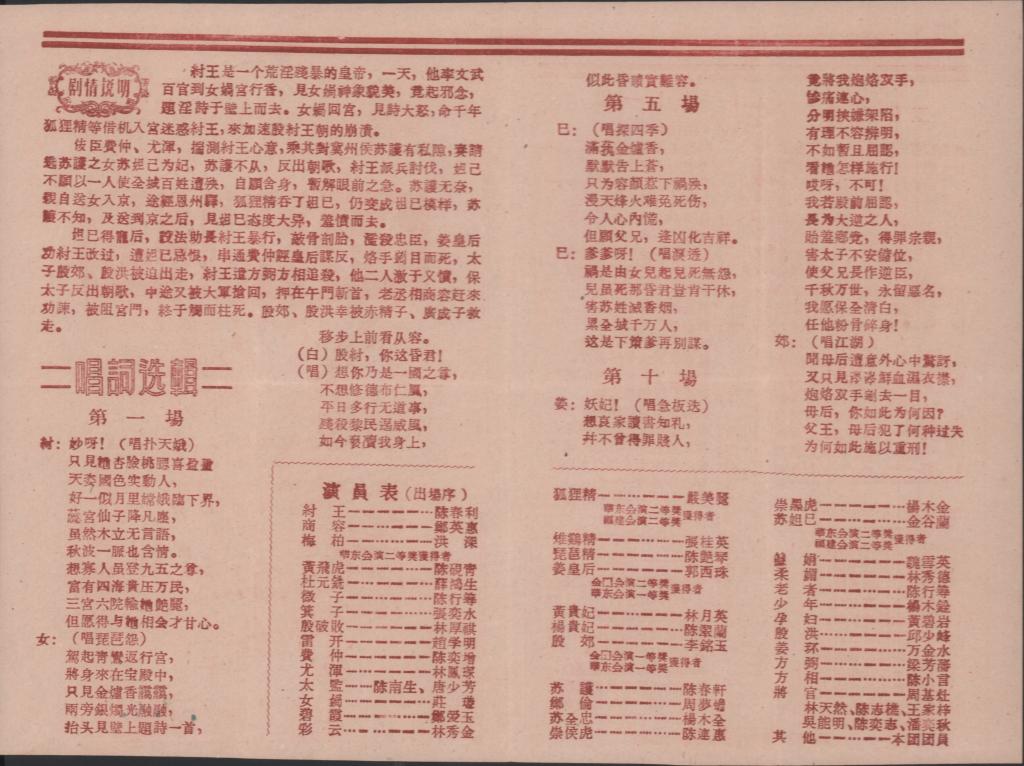 剧情説明
紂王是一个荒淫殘暴的皇帝，一天，他率文武
百官到女媧宮行香，見女媧神象貌美，竟起邪念，
題淫詩于壁上而去。女媧回宮，見詩大怒，命千年
狐狸精等借机入宮迷惑紂王，來加速殷紂王朝的崩潰。
佞臣費仲、尤渾，揣測紂王心意，乘其對冀州侯苏護有私隙，奏請
选苏護之女苏妲己为妃，苏護不从，反出朝歌，紂王派兵討伐，妲己
不願以一人使全城百姓遭殃，自願舍身，暫解眼前之急。苏護无奈，
親自送女入京，途經恩州驛，狐狸精吞了妲己，仍变成妲已模样，苏
護不知，及送到京之后，見妲已态度大异，羞憤而去。
妲已得寵后，設法助長紂王暴行，敲骨剖胎，濫殺忠臣，姜皇后
功紂王改过，遭妲已忌恨，串通費仲誣皇后謀反，烙手剜目而死，太
子殷郊、殷洪被迫出走，紂王遣方弼方相追殺，他二人激于义憤，保
太子反出朝歌，中途又被大軍搶回，押在午門斬首，老丞相商容赶來
功諫，被阻宮門，終于觸而柱死。殷郊、殷洪幸被赤精子、廣成子救
走。
唱詞选輯
第一場
紂：妙呀！（唱扑天娥）
只見她杏臉桃腮喜盈盈
天姿國色实動人，
好一似月里嫦娥臨下界，
蕊宮仙子降凡塵，
虽然木立无言語，
秋波一脈也含情。
想寡人虽登九五之尊，
富有四海貴压万民，
三宮六院輸她艳麗，
但愿得与她相会才甘心。
女：（唱琵琶怨）
駕起青鸞返行宮，
將身來在宝殿中，
只見金爐香靄靄，
兩旁銀燭光融融，
抬头見壁上題詩一首，
移步上前看从容。
（白）殷紂，你这昏君！
（唱）想你乃是一國之尊，
不想修德布仁風，
平日多行无道事，
殘殺黎民逞威風，
如今褻瀆我身上，
似此昏聵實難容。
第五場
巳：（唱探四季）
滿装金爐香，
默默告上苍，
只为容顏惹下禍殃，
漫天烽火难免死伤，
令人心内慌，
但願父兄，逢凶化吉祥。
巳：爹爹呀！（唱滾透）
禍是由女兒起兒死無怨，
兒虽死那昏君豈肯干休，
害苏姓滅香烟，
累全城千万人，
这是下策爹再別謀。
第十場
姜：妖妃！（唱急板迭）
想哀家讀書知礼，
并不曾得罪賤人，
竟將我炮烙双手，
慘痛連心，
分明挾嫌架陷，
有理不容辨明，
不如暫且屈認，
看她怎样施行！
哎呀，不可！
我若殷前屈認，
長为大逆之人，
貽羞鄉党，得罪宗親，
害太子不安儲位，
使父兄長作逆臣，
千秋万世，永留惡名，
我愿保全清白，
任他粉骨碎身！
郊：（唱江湖）
聞母后遭意外心中驚訝，
又只見滲滲鮮血濕衣襟，
炮烙双手剜去一目，
母后，你如此为何因？
父王，母后犯了何种过失
为何如此施以重刑！
演員表（出場序）
紂王————陈春利
商容————鄭英惠
梅柏————洪深
華东会演二等獎獲得者
黃飛虎————陈硯青
杜元銑————薛鴻生
微子————陈行筹
箕子————張奕水
殷破敗————林厚祺
雷开————趙學明
費仲————陈奕增
尤渾————林鳳琛
太監——陈南生、唐少芳
女媧————莊璇
碧霞————鄭愛玉
彩云————林秀金
狐狸精————嚴美賢
華东会演二等獎獲得者
福建会演二等獎
雉鷄精————張桂英
琵琶精————陈艶琴
姜皇后————郭西珠
会演二等獎獲得者
華东会演一等獎
黃貴妃————林月英
楊貴妃————陈潔蘭
殷郊————李銘玉
会演一等獎獲得者
華东会演一等獎
苏護————陈春軒
鄭倫————周夢蟾
苏全忠————楊木全
崇侯虎————陈連惠
崇黑虎————楊木金
苏妲巳————金谷蘭
華东会演二等獎獲得者
福建会演二等獎
盤娟————魏雲英
柔媚————林秀德
老者————陈行筹
少年————楊木銓
孕妇————黃碧岩
殷洪————邱少峰
姜环————万金水
方弼————梁芳藩
方相————陈小言
將官————周基灶
林天然、陈志樵、王家梓
吳能明、陈奕志、潘奕秋
其他————本团團員